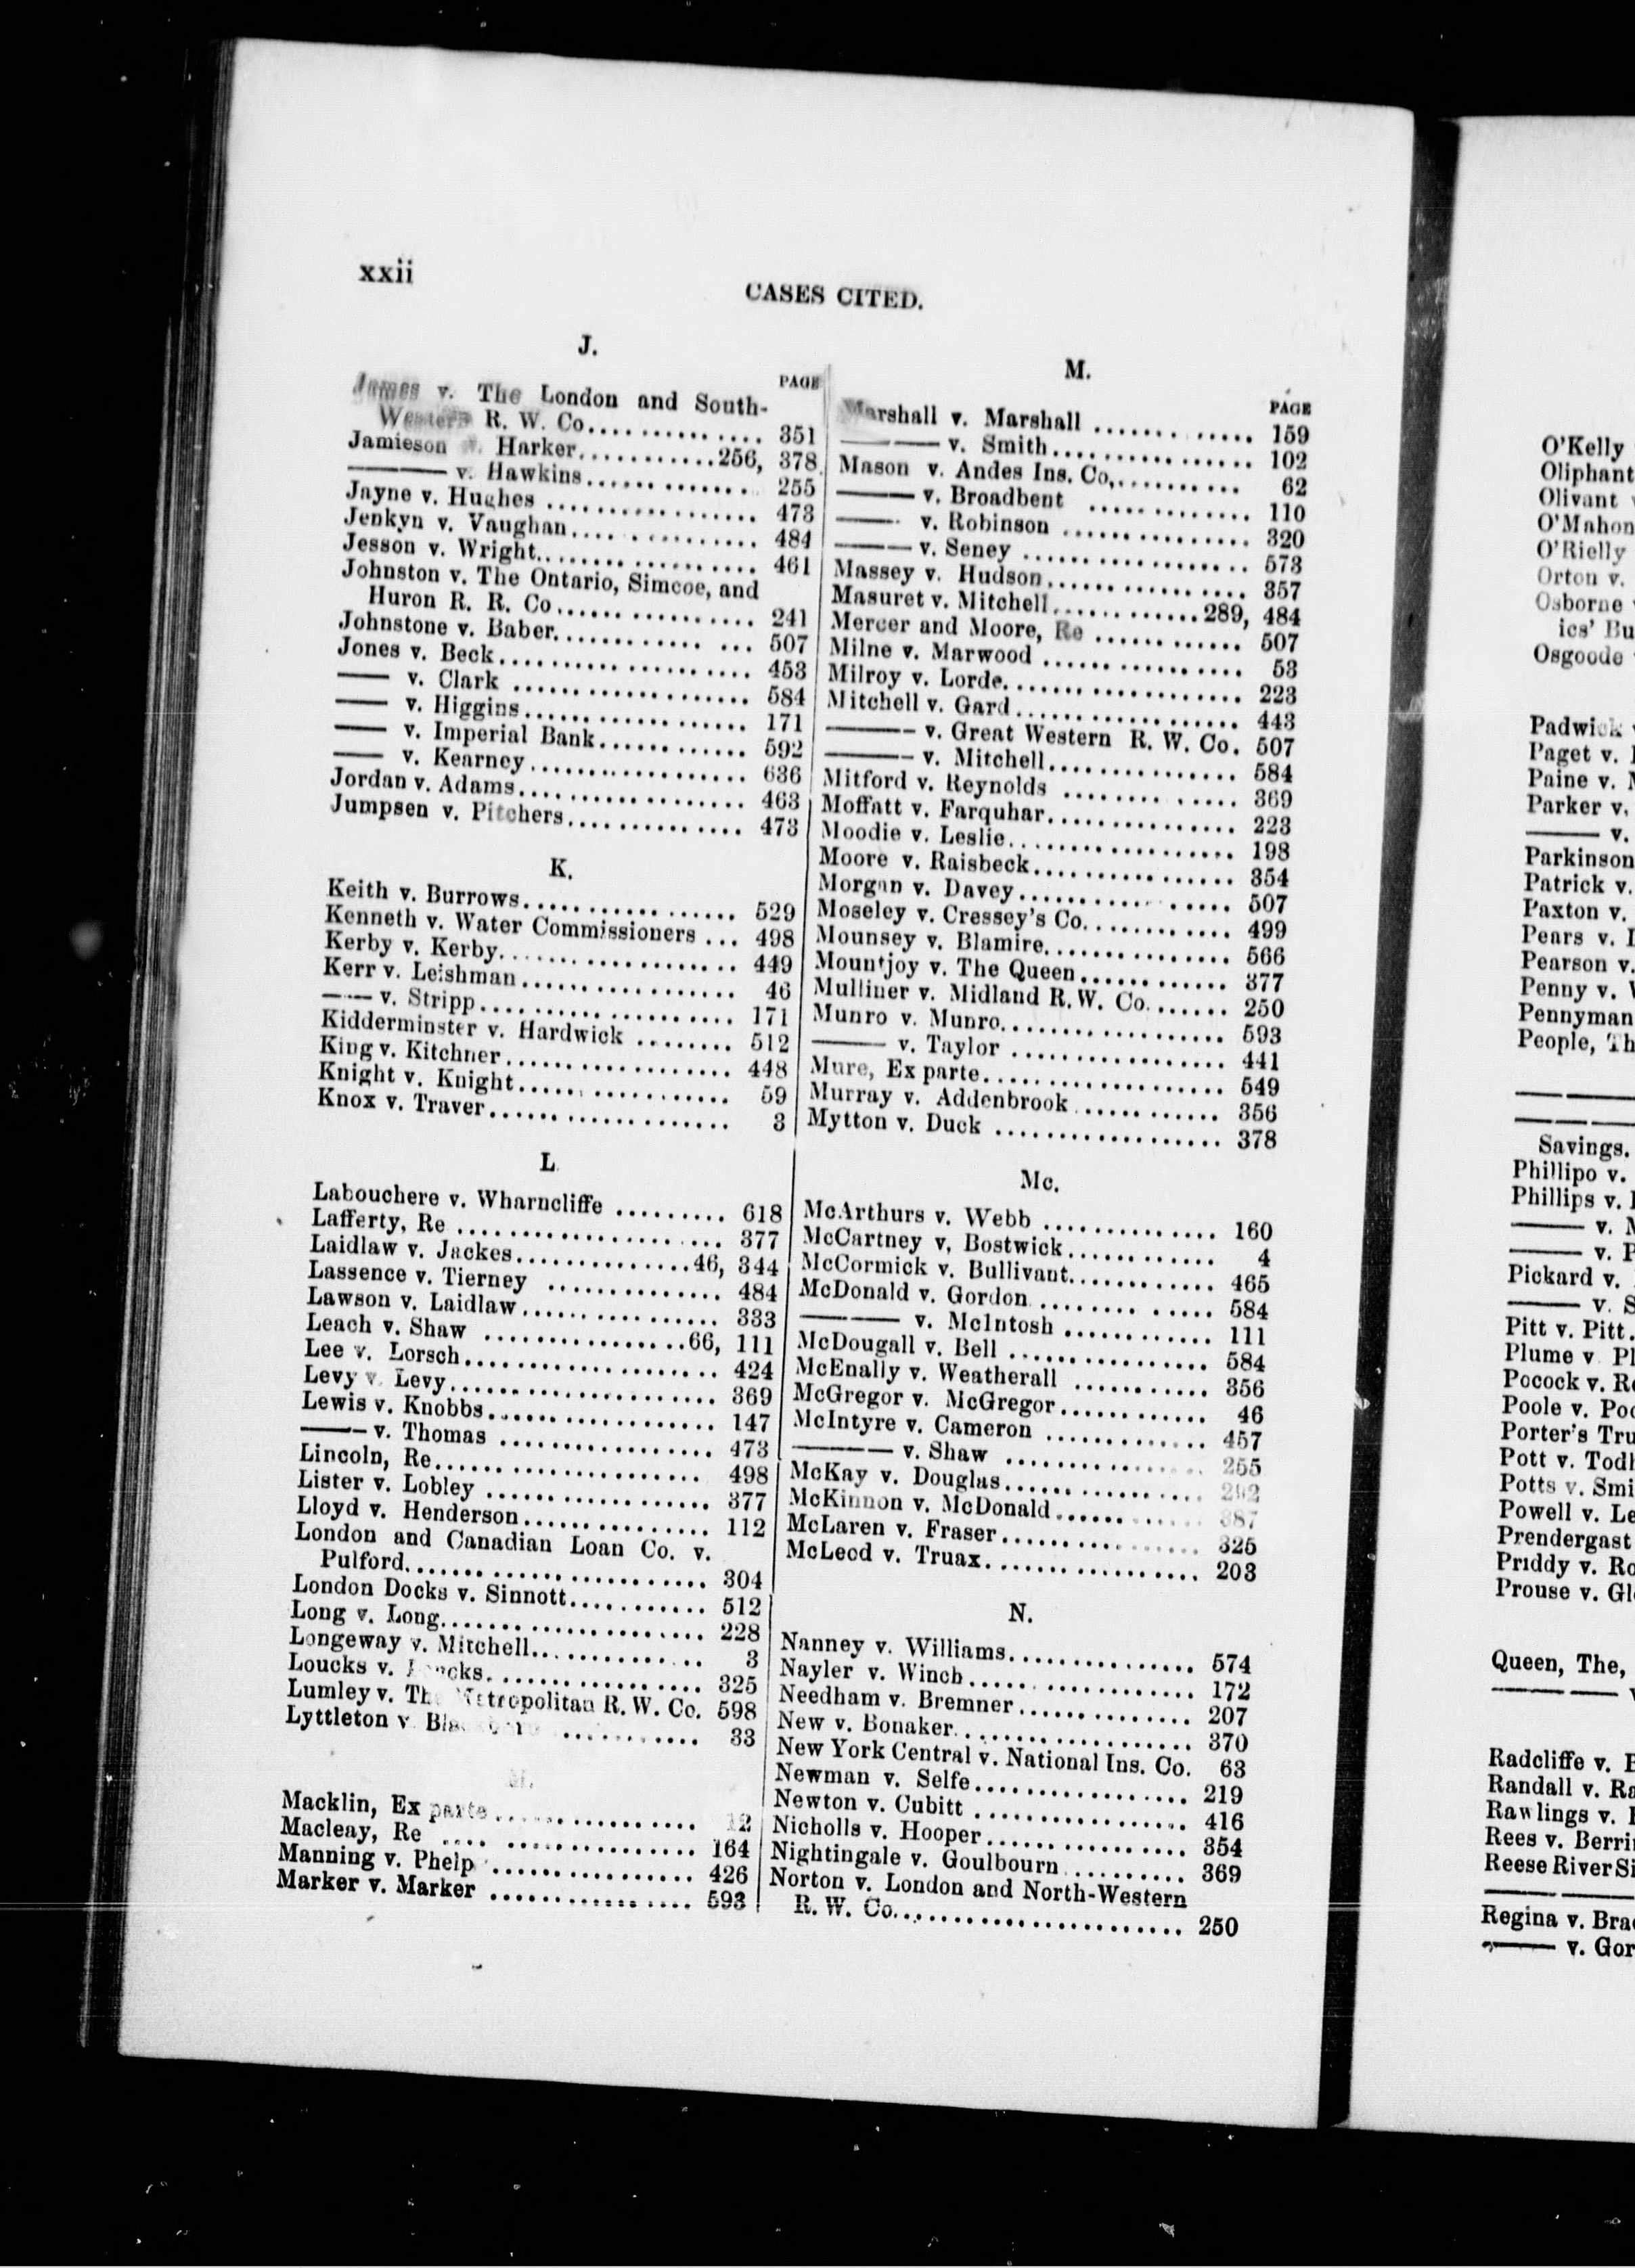 xxii
CASES CITED.
J.
PAGE
James v. The London and South-
Western R. W. Co.............. 351
Jamieson v. Harker...........256, 378
——— v. Hawkins............. 255
Jayne v. Hughes .................. 473
Jenkyn v. Vaughan................ 484
Jesson v. Wright................... 461
Johnston v. The Ontario, Simcoe, and
Huron R. R. Co.................. 241
Johnstone v. Baber............. ... 507
Jones v. Beck..................... 453
—— v. Clark .................... 584
—— v. Higgins................... 171
—— v. Imperial Bank............ 592
—— v. Kearney................... 636
Jordan v. Adams................... 463
Jumpsen v. Pitchers............... 473
K.
Keith v. Burrows.................. 529
Kenneth v. Water Commissioners ... 498
Kerby v. Kerby.................... 449
Kerr v. Leishman.................. 46
—— v. Stripp..................... 171
Kidderminster v. Hardwick ........ 512
King v. Kitchner................... 448
Knight v. Knight.................. 59
Knox v. Traver.................... 3
L
Labouchere v. Wharncliffe ......... 618
Lafferty, Re ....................... 377
Laidlaw v. Jackes...............46, 344
Lassence v. Tierney .............. 484
Lawson v. Laidlaw................. 333
Leach v. Shaw ..................66, 111
Lee v. Lorsch...................... 424
Levy v. Levy....................... 369
Lewis v. Knobbs................... 147
——— v. Thomas ................. 473
Lincoln, Re........................ 498
Lister v. Lobley ................... 377
Lloyd v. Henderson................ 112
London and Canadian Loan Co. v.
Pulford.......................... 304
London Docks v. Sinnott........... 512
Long v. Long....................... 228
Longeway v. Mitchell.............. 3
Loucks v. Loucks................... 325
Lumley v. The Metropolitan R. W. Co. 598
Lyttleton v. ............ 33
M.
Macklin, Ex parte.................. 12
Macleay, Re .... ................. 164
Manning v. Phelp ................. 426
Marker v. Marker .................. 593
M.
PAGE
Marshall v. Marshall ............. 159
——— v. Smith.................. 102
Mason v. Andes Ins. Co,........... 62
——— v. Broadbent ............. 110
——— v. Robinson ............... 320
——— v. Seney ................... 573
Massey v. Hudson.................. 357
Masuret v. Mitchell............289, 484
Mercer and Moore, Re ............ 507
Milne v. Marwood ................. 53
Milroy v. Lorde.................... 223
Mitchell v. Gard................... 443
———— v. Great Western R. W. Co. 507
———— v. Mitchell............... 584
Mitford v. Reynolds .............. 369
Moffatt v. Farquhar................ 223
Moodie v. Leslie................... 198
Moore v. Raisbeck................. 354
Morgan v. Davey.................. 507
Moseley v. Cressey's Co............ 499
Mounsey v. Blamire................ 566
Mountjoy v. The Queen............ 377
Mulliner v. Midland R. W. Co....... 250
Munro v. Munro................... 593
——— v. Taylor .................. 441
Mure, Ex parte.................... 549
Murray v. Addenbrook............. 356
Mytton v. Duck ................... 378
Mc.
McArthurs v. Webb ............... 160
McCartney v, Bostwick............ 4
McCormick v. Bullivant............ 465
McDonald v. Gordon.............. 584
———— v. McIntosh ............ 111
McDougall v. Bell ................. 584
McEnally v. Weatherall ........... 356
McGregor v. McGregor............ 46
McIntyre v. Cameron .............. 457
———— v. Shaw ................. 255
McKay v. Douglas................. 292
McKinnon v. McDonald............ 387
McLaren v. Fraser................. 325
McLeod v. Truax.................. 203
N.
Nanney v. Williams................ 574
Nayler v. Winch................... 172
Needham v. Bremner.............. 207
New v. Bonaker.................... 370
New York Central v. National Ins. Co. 63
Newman v. Selfe................... 219
Newton v. Cubitt .................. 416
Nicholls v. Hooper................. 354
Nightingale v. Goulbourn.......... 369
Norton v. London and North-Western
R. W. Co......................... 250
O'Kelly
Oliphant
Olivant
O'Mahon
O'Rielly
Orton v.
Osborne
ics' Bu
Osgoode
Padwick
Paget v.
Paine v.
Parker v.
——— v.
Parkinson
Patrick v.
Paxton v.
Pears v.
Pearson v.
Penny v.
Pennyman
People, Th
Savings.
Phillipo v.
Phillips v.
——— v.
——— v. P
Pickard v.
——— v. S
Pitt v. Pitt.
Plume v Pl
Pocock v. Re
Poole v. Poo
Porter's Tru
Pott v. Todh
Potts v. Smi
Powell v. Le
Prendergast
Priddy v. Ro
Prouse v. Gl
Queen, The,
Radcliffe v.
Randall v. Ra
Rawlings v.
Rees v. Berri
Reese River Si
Regina v. Bra
——— v. Gor